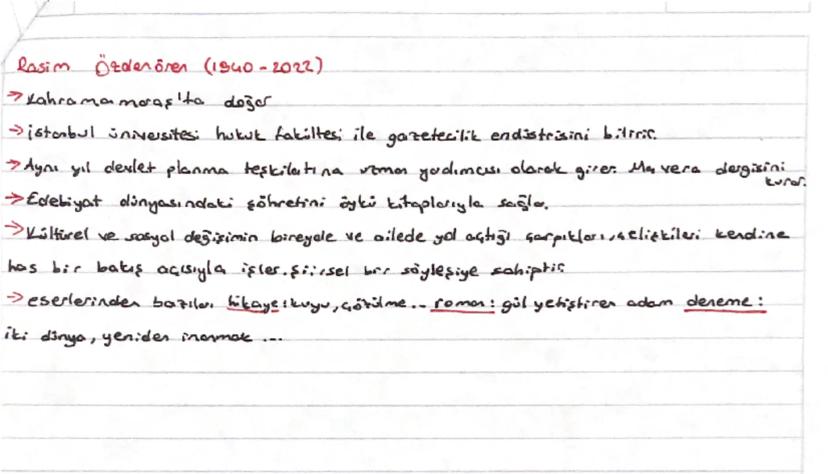 Rasim Özdenören (1940-2022)
→ Kahramanmaraş'ta doğar
→ istanbul üniversitesi hukuk fakültesi ile gazetecilik endüstrisini bitirir.
→ Aynı yıl devlet planma teşkilatına uzman yardımcısı olarak girer. Mavera dergisini
kurar.
→ Edebiyat dünyasındaki şöhretini öykü kitaplarıyla sağlar.
→ Kültürel ve sosyal değişimin bireyde ve ailede yol açtığı çarpıkları, çelişkileri kendine
has bir bakış açısıyla işler. Şiirsel bir söyleşiye sahiptir
→ eserlerinden bazıları hikaye: kuyu, çözülme .. roman: gül yetiştiren adam deneme:
iki dünya, yeniden inanmak ...